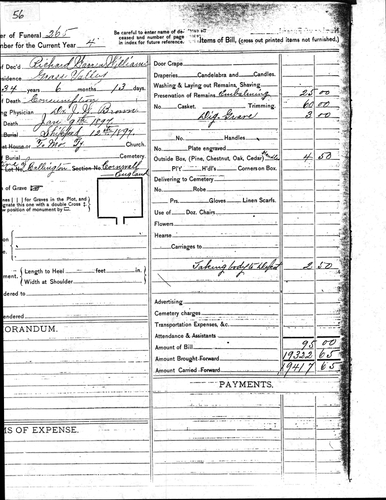 56
er of Funeral 265
mber for the Current Year 4
Be carefull to enter name of de-
ceased and number of page
in index for future reference.
Items of Bill, (cross out printed items not furnished.)
of Dec'd Richard Williams
esidence Grass Valley
34 years 6 months 13 days.
Death Consumption
ng Physician Dr. J. W. Brown
Death Jan 9th 1897
Burial Shipped 12th 1897.
Church.
Burial Cemetery
Lot No. Callington Section No. Cornwall
England
s of Grave
nes for Graves in the Plot, and
signate this one with a double Cross
position of monument by
Length to Heel feet in.
ment.
Width at Shoulder
ndered to
ered to
MORANDUM.
MS OF EXPENSE.
Door Crape
Draperies Candelabra and Candles.
Washing & Laying out Remains, Shaving
Preservation of Remains Embalming 25 00
No. Casket. Trimming. 60 00
3 00
No. Handles
No. Plate engraved
Outside Box, (Pine, Chestnut, Oak, Cedar) 4 50
Corners on Box.
Delivering to Cemetery
No. Robe
Prs. Gloves Linen Scarfs.
Use of Doz. Chairs
Flowers
Hearse
Carriages to
Taking body to Depot 2 50
Advertising
Cemetery charges
Transportation Expenses, &c.
Attendance & Assistants
Amount of Bill 95 00
Amount Brought Forward 19322 65
Amount Carried Forward 19417 65
PAYMENTS.